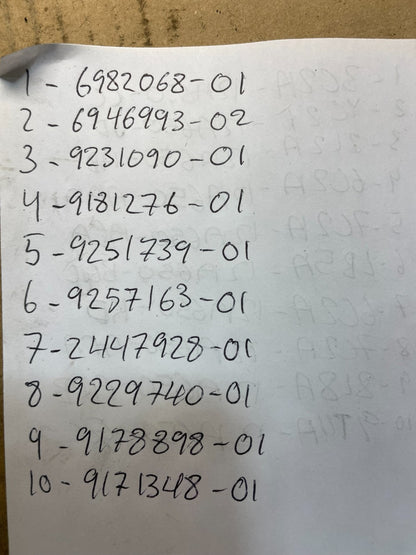 1 - 6982068-01
2 - 6946993-02
3 - 9231090-01
4 - 9181276-01
5 - 9251739-01
6 - 9257163-01
7-2447928-01
8 - 9229740-01
9 - 9178898-01
10 - 9171348-01